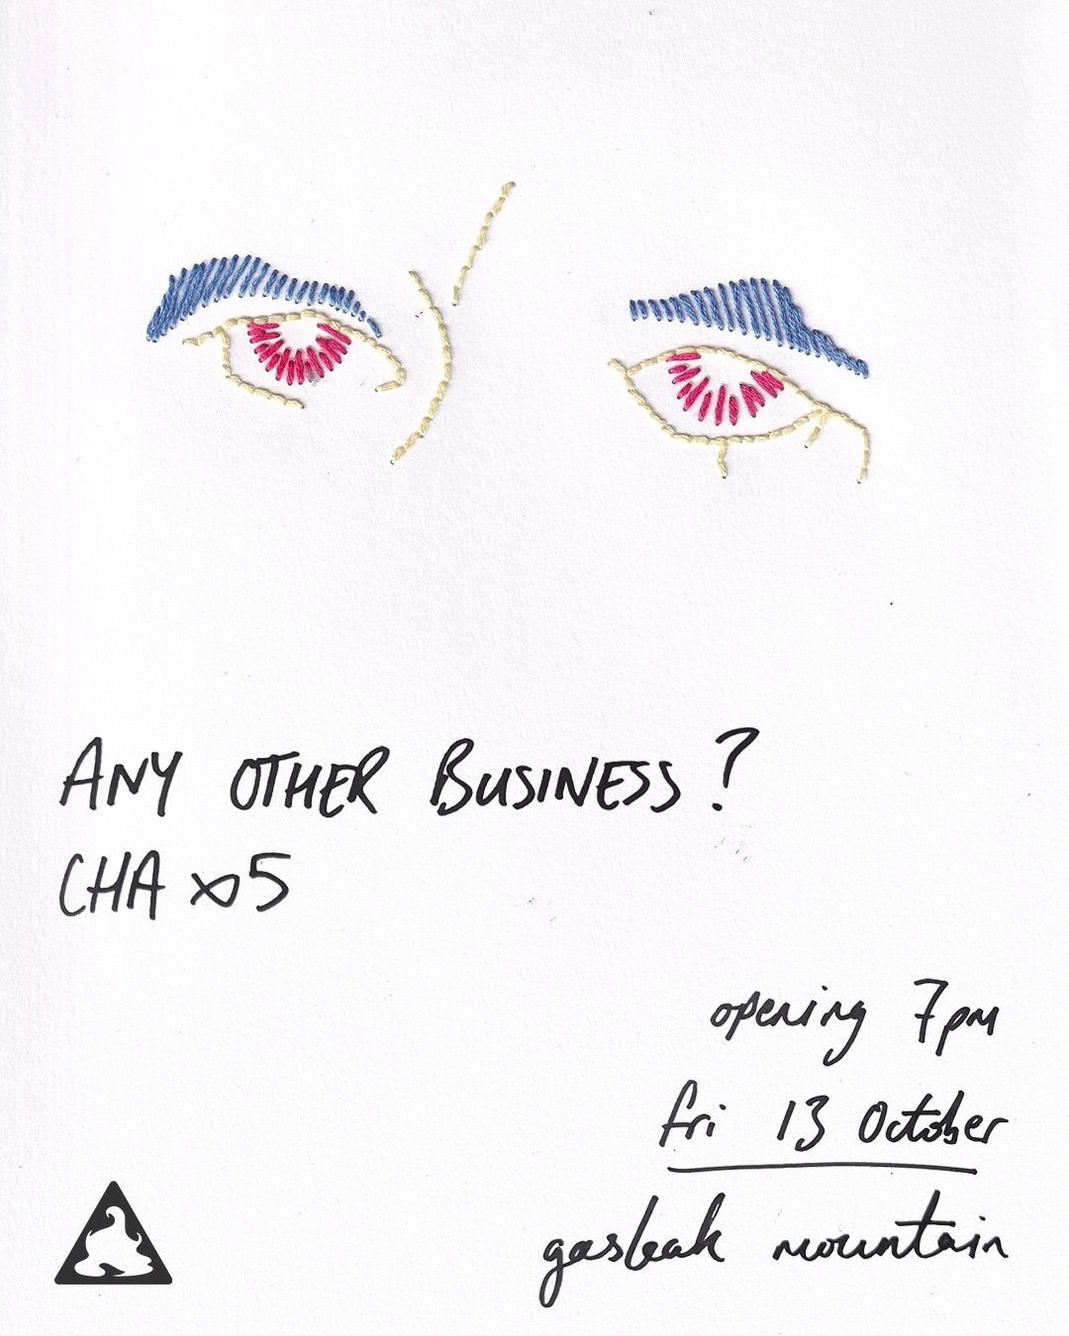 ANY OTHER BUSINESS?
CHA x5
opening 7pm
fri 13 October
gasleak mountain